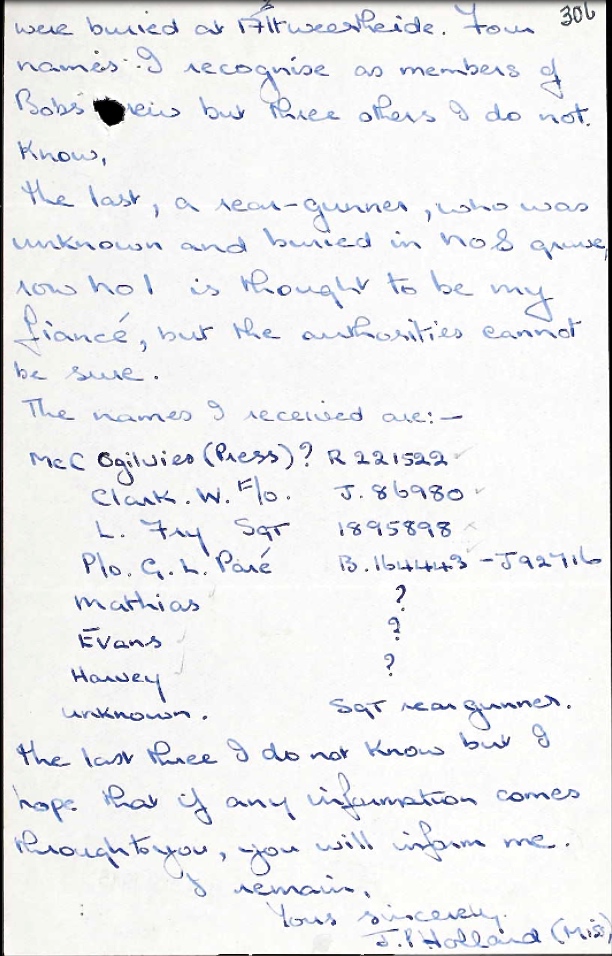 306
were buried at Altweertheide. Four
names I recognise as members of
Bobs crew but three others I do not.
Know,
the last, a rear-gunner, who was
unknown and buried in No 8 grave,
row No 1 is thought to be my
fiancé, but the authorities cannot
be sure.
The names I received are:—
McC Ogilvies (Press)? R 221522
Clark. W. F/o. J. 86980
L. Fry Sgt 1895898
P/o. G. L. Paré B. 164443 - J92716
Mathias ?
Evans ?
Harvey ?
unknown. Sgt rear gunner.
the last three I do not know but I
hope that if any information comes
through to you, you will inform me.
I remain,
Yours sincerely.
J.P Holland (Miss)